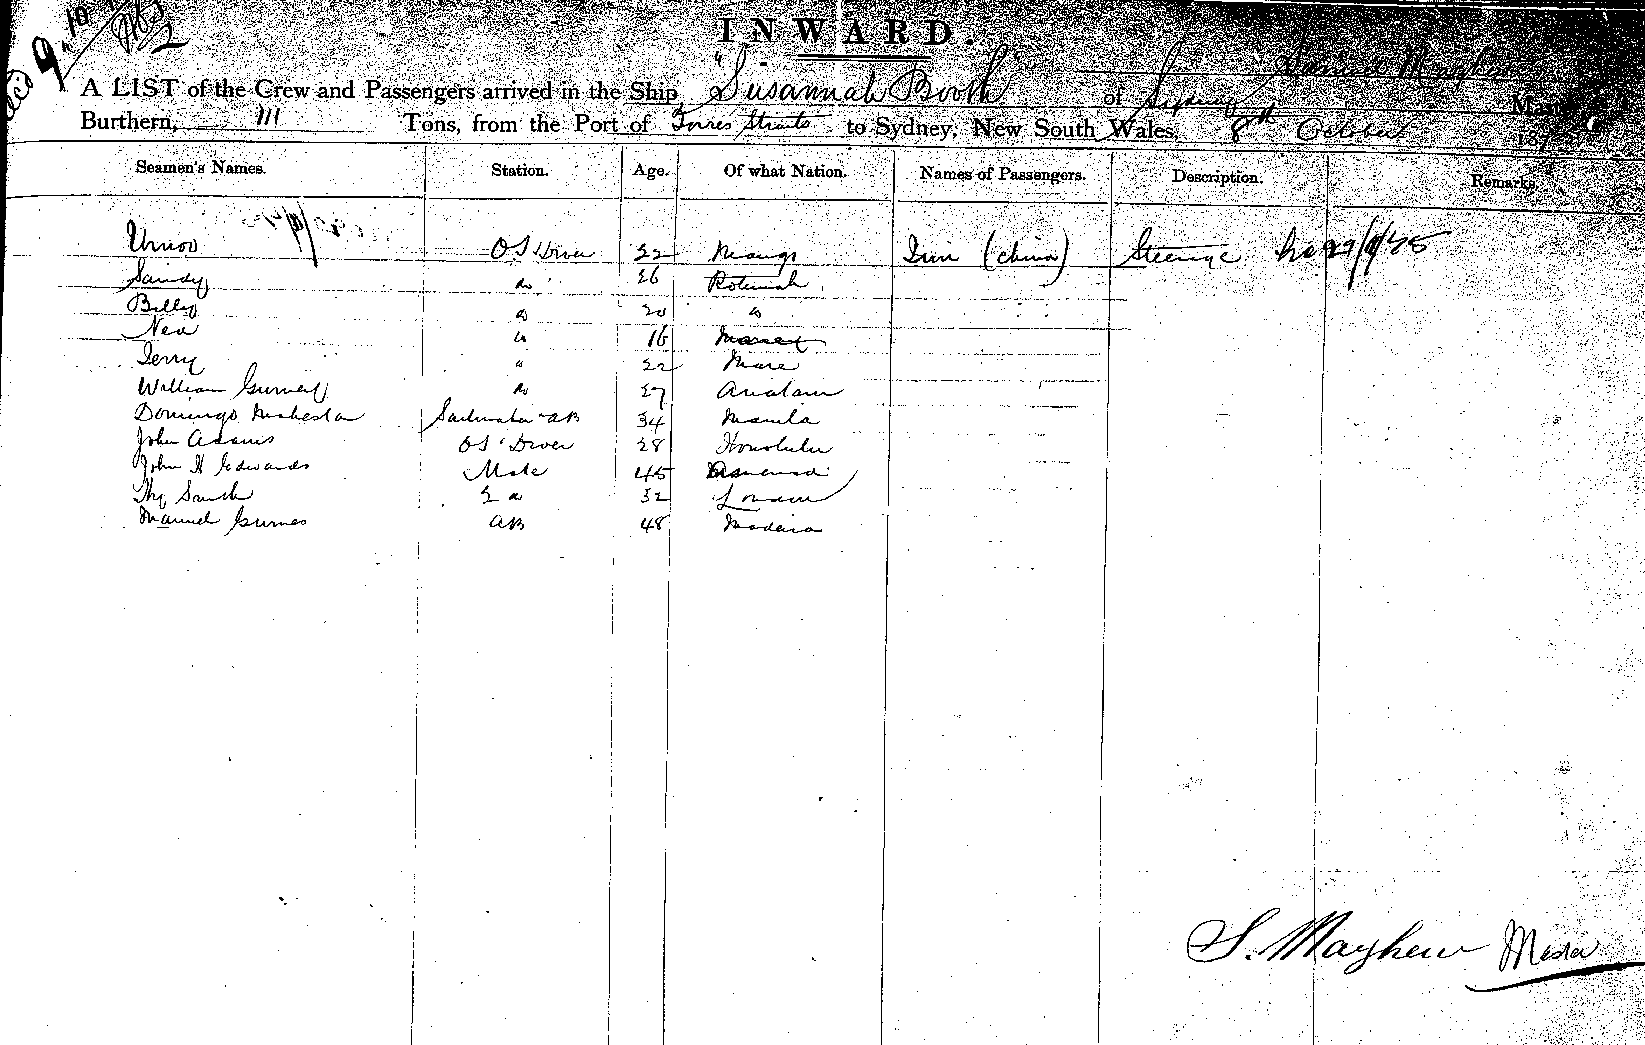 9.10
INWARD.
Samuel Mayhew
A LIST of the Crew and Passengers arrived in the Ship "Susannah Booth" of Sydney
Burthern, 111 Tons, from the Port of Torres Straits to Sydney, New South Wales, 8th October 187
Seamen's Names. Station. Age. Of what Nation. Names of Passengers. Description. Remarks.
OS Diver 22 (China) Steerage 27/9/75
Sandy do 26 Rotumah
Billy do 20 do
16
Jerry " 22 Mare
William do 27
Domingo AB 34 Manila
John Adams OS Diver 28 Honolulu
John H Edwards Mate 45
Thos Smith 2 do 32 London
Manuel AB 48 Madeira
S. Mayhew Master